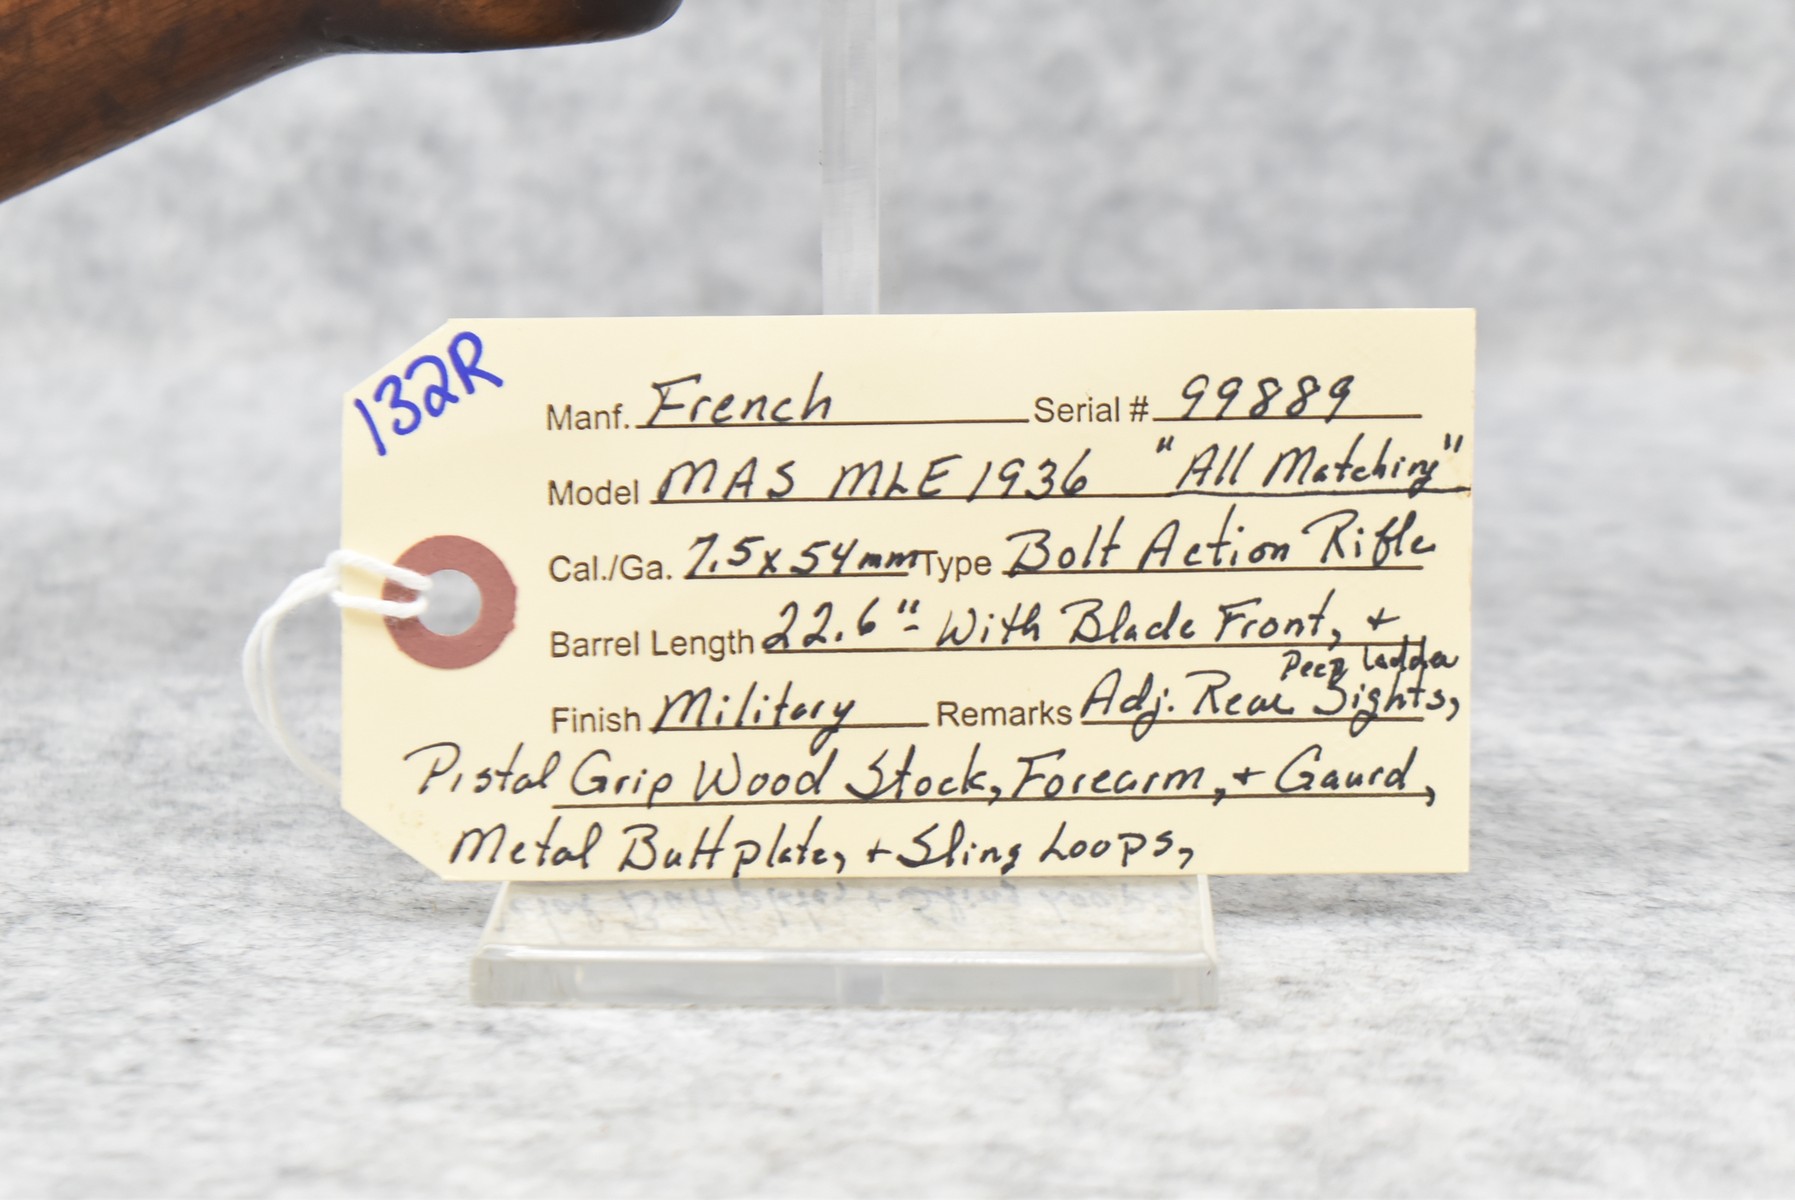 132R
Manf. French Serial # 99889
Model MAS MLE 1936 "All Matching"
Cal./Ga. 7.5x54mm Type Bolt Action Rifle
Barrel Length 22.6" - With Blade Front, +
Peep ladder
Finish Military Remarks Adj. Rear Sights,
Pistal Grip Wood Stock, Forearm, + Gaurd,
Metal Buttplate, + Sling Loops,